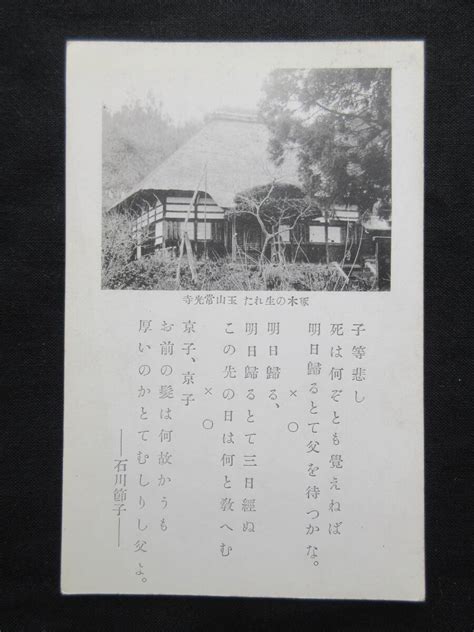 啄木の生れた 玉山常光寺
子等悲し
死は何ぞとも覺えねば
明日歸るとて父を待つかな。
× ○
明日歸る、
明日歸るとて三日經ぬ
この先の日は何と敎へむ
× ○
京子、京子
お前の髮は何故かうも
厚いのかとてむしりし父よ。
——石川節子——